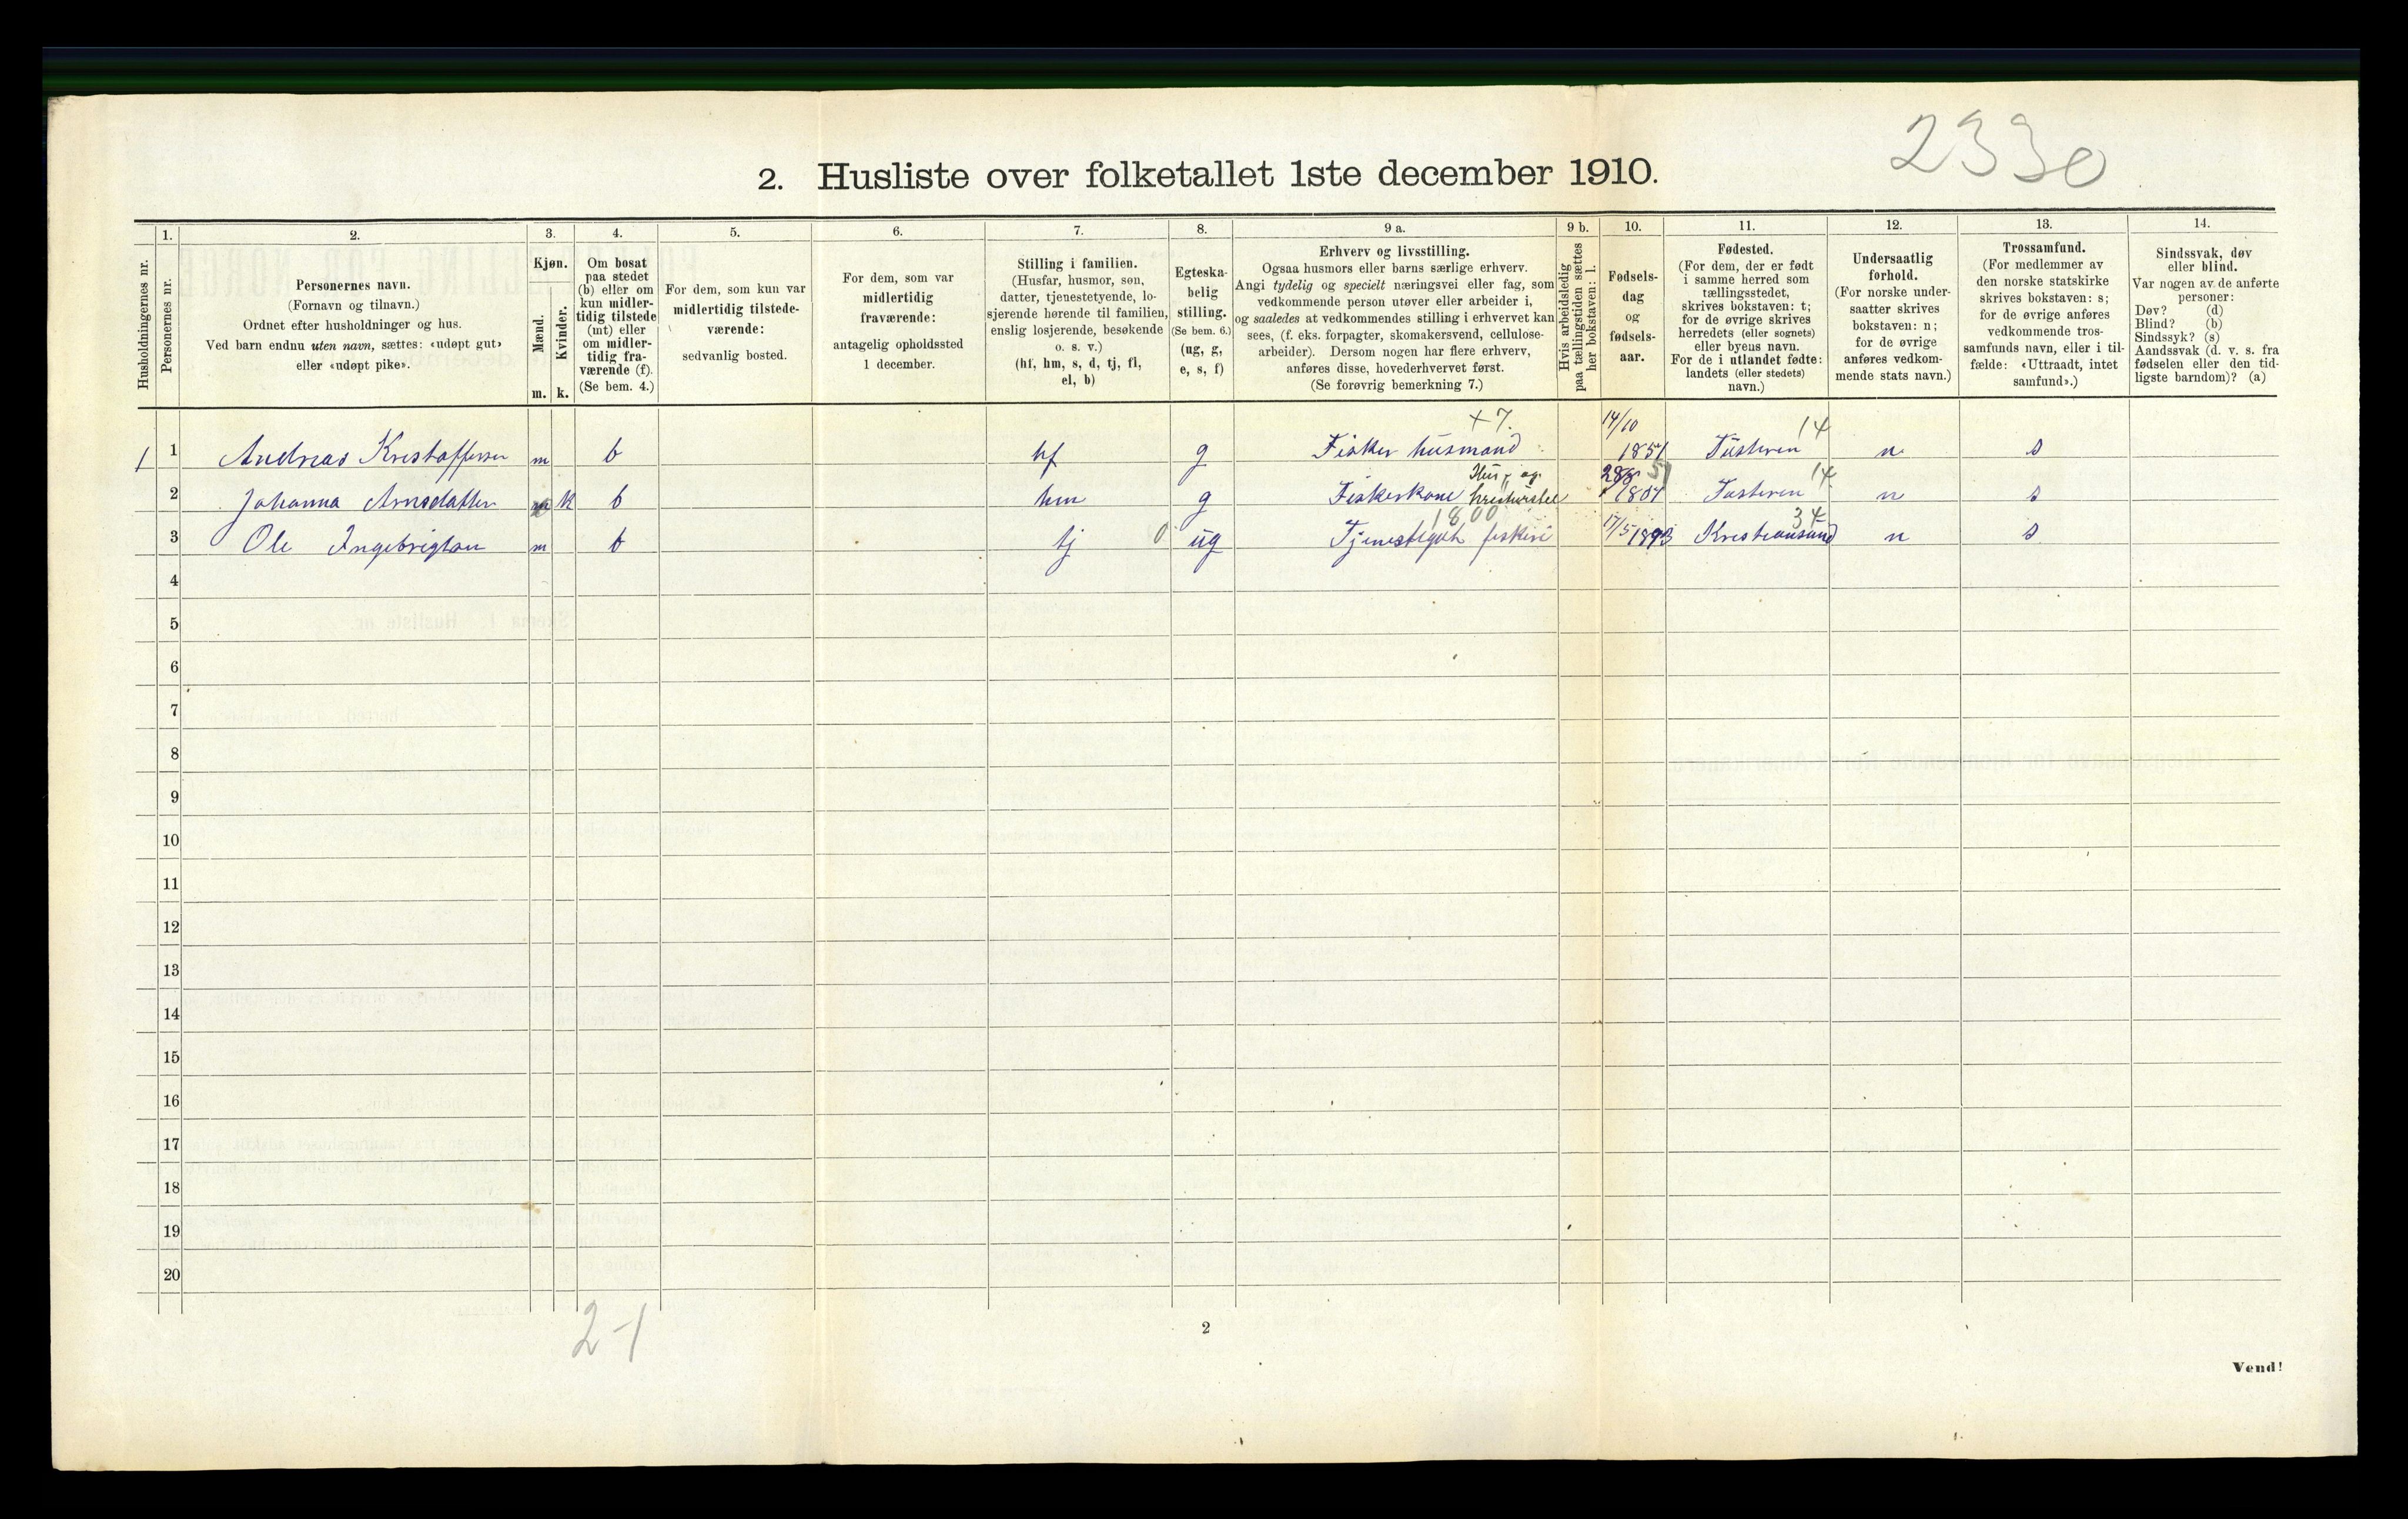 2330
2. Husliste over folketallet 1ste december 1910.
Husholdningernes nr.
1.
Personernes nr.
2.
Personernes navn.
(Fornavn og tilnavn.)
Ordnet efter husholdninger og hus.
Ved barn endnu uten navn, sættes: «udøpt gut»
eller «udøpt pike».
3.
Kjøn.
Mænd.
Kvinder.
m. k.
4.
Om bosat
paa stedet
(b) eller om
kun midler-
tidig tilstede
(mt) eller
om midler-
tidig fra-
værende (f).
(Se bem. 4.)
5.
For dem, som kun var
midlertidig tilstede-
værende:
sedvanlig bosted.
6.
For dem, som var
midlertidig
fraværende:
antagelig opholdssted
1 december.
7.
Stilling i familien.
(Husfar, husmor, søn,
datter, tjenestetyende, lo-
sjerende hørende til familien,
enslig losjerende, besøkende
o. s. v.)
(hf, hm, s, d, tj, fl,
el, b)
8.
Egteska-
belig
stilling.
(Se bem. 6.)
(ug, g,
e, s, f)
9 a.
Erhverv og livsstilling.
Ogsaa husmors eller barns særlige erhverv.
Angi tydelig og specielt næringsvei eller fag, som
vedkommende person utøver eller arbeider i,
og saaledes at vedkommendes stilling i erhvervet kan
sees, (f. eks. forpagter, skomakersvend, cellulose-
arbeider). Dersom nogen har flere erhverv,
anføres disse, hovederhvervet først.
(Se forøvrig bemerkning 7.)
9 b.
Hvis arbeidsledig
paa tællingstiden sættes
her bokstaven: l.
10.
Fødsels-
dag
og
fødsels-
aar.
11.
Fødested.
(For dem, der er født
i samme herred som
tællingsstedet,
skrives bokstaven: t;
for de øvrige skrives
herredets (eller sognets)
eller byens navn.
For de i utlandet fødte:
landets (eller stedets)
navn.)
12.
Undersaatlig
forhold.
(For norske under-
saatter skrives
bokstaven: n;
for de øvrige
anføres vedkom-
mende stats navn.)
13.
Trossamfund.
(For medlemmer av
den norske statskirke
skrives bokstaven: s;
for de øvrige anføres
vedkommende tros-
samfunds navn, eller i til-
fælde: «Uttraadt, intet
samfund».)
14.
Sindssvak, døv
eller blind.
Var nogen av de anførte
personer:
Døv? (d)
Blind? (b)
Sindssyk? (s)
Aandssvak (d. v. s. fra
fødselen eller den tid-
ligste barndom)? (a)
+7. 14/10 14
1 1 Andreas Kristoffersen m b hf g Fisker husmand 1851 Tusteren n s
Hus- og 51 14
2 Johanna Arnsdatter k b hm g Fiskerkone kreaturstel Tusteren n s
1800 34
3 Ole Ingebrigtsen m b tj 0 ug Tjenestegut fiskeri 17/5 1893 Kristiansund n s
4
5
6
7
8
9
10
11
12
13
14
15
16
17
18
19
20
2-1
2
Vend!